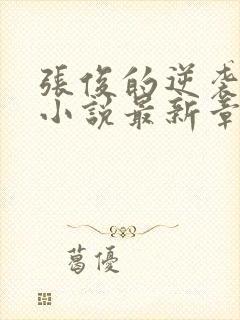 張俊的逆袭
小說最新章
葛優